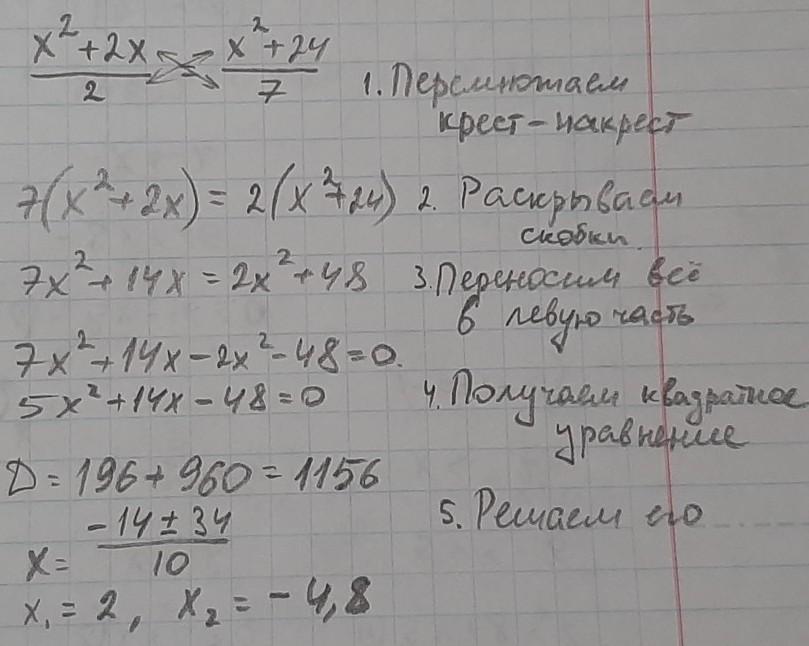 x² + 2x / 2   x² + 24 / 7
1. Перемножаем
крест-накрест
7(x² + 2x) = 2(x² + 24)   2. Раскрываем
скобки.
7x² + 14x = 2x² + 48   3. Переносим всё
в левую часть
7x² + 14x - 2x² - 48 = 0.
5x² + 14x - 48 = 0   4. Получаем квадратное
уравнение
D = 196 + 960 = 1156
x = -14 ± 34 / 10   5. Решаем его
x₁ = 2, x₂ = -4,8